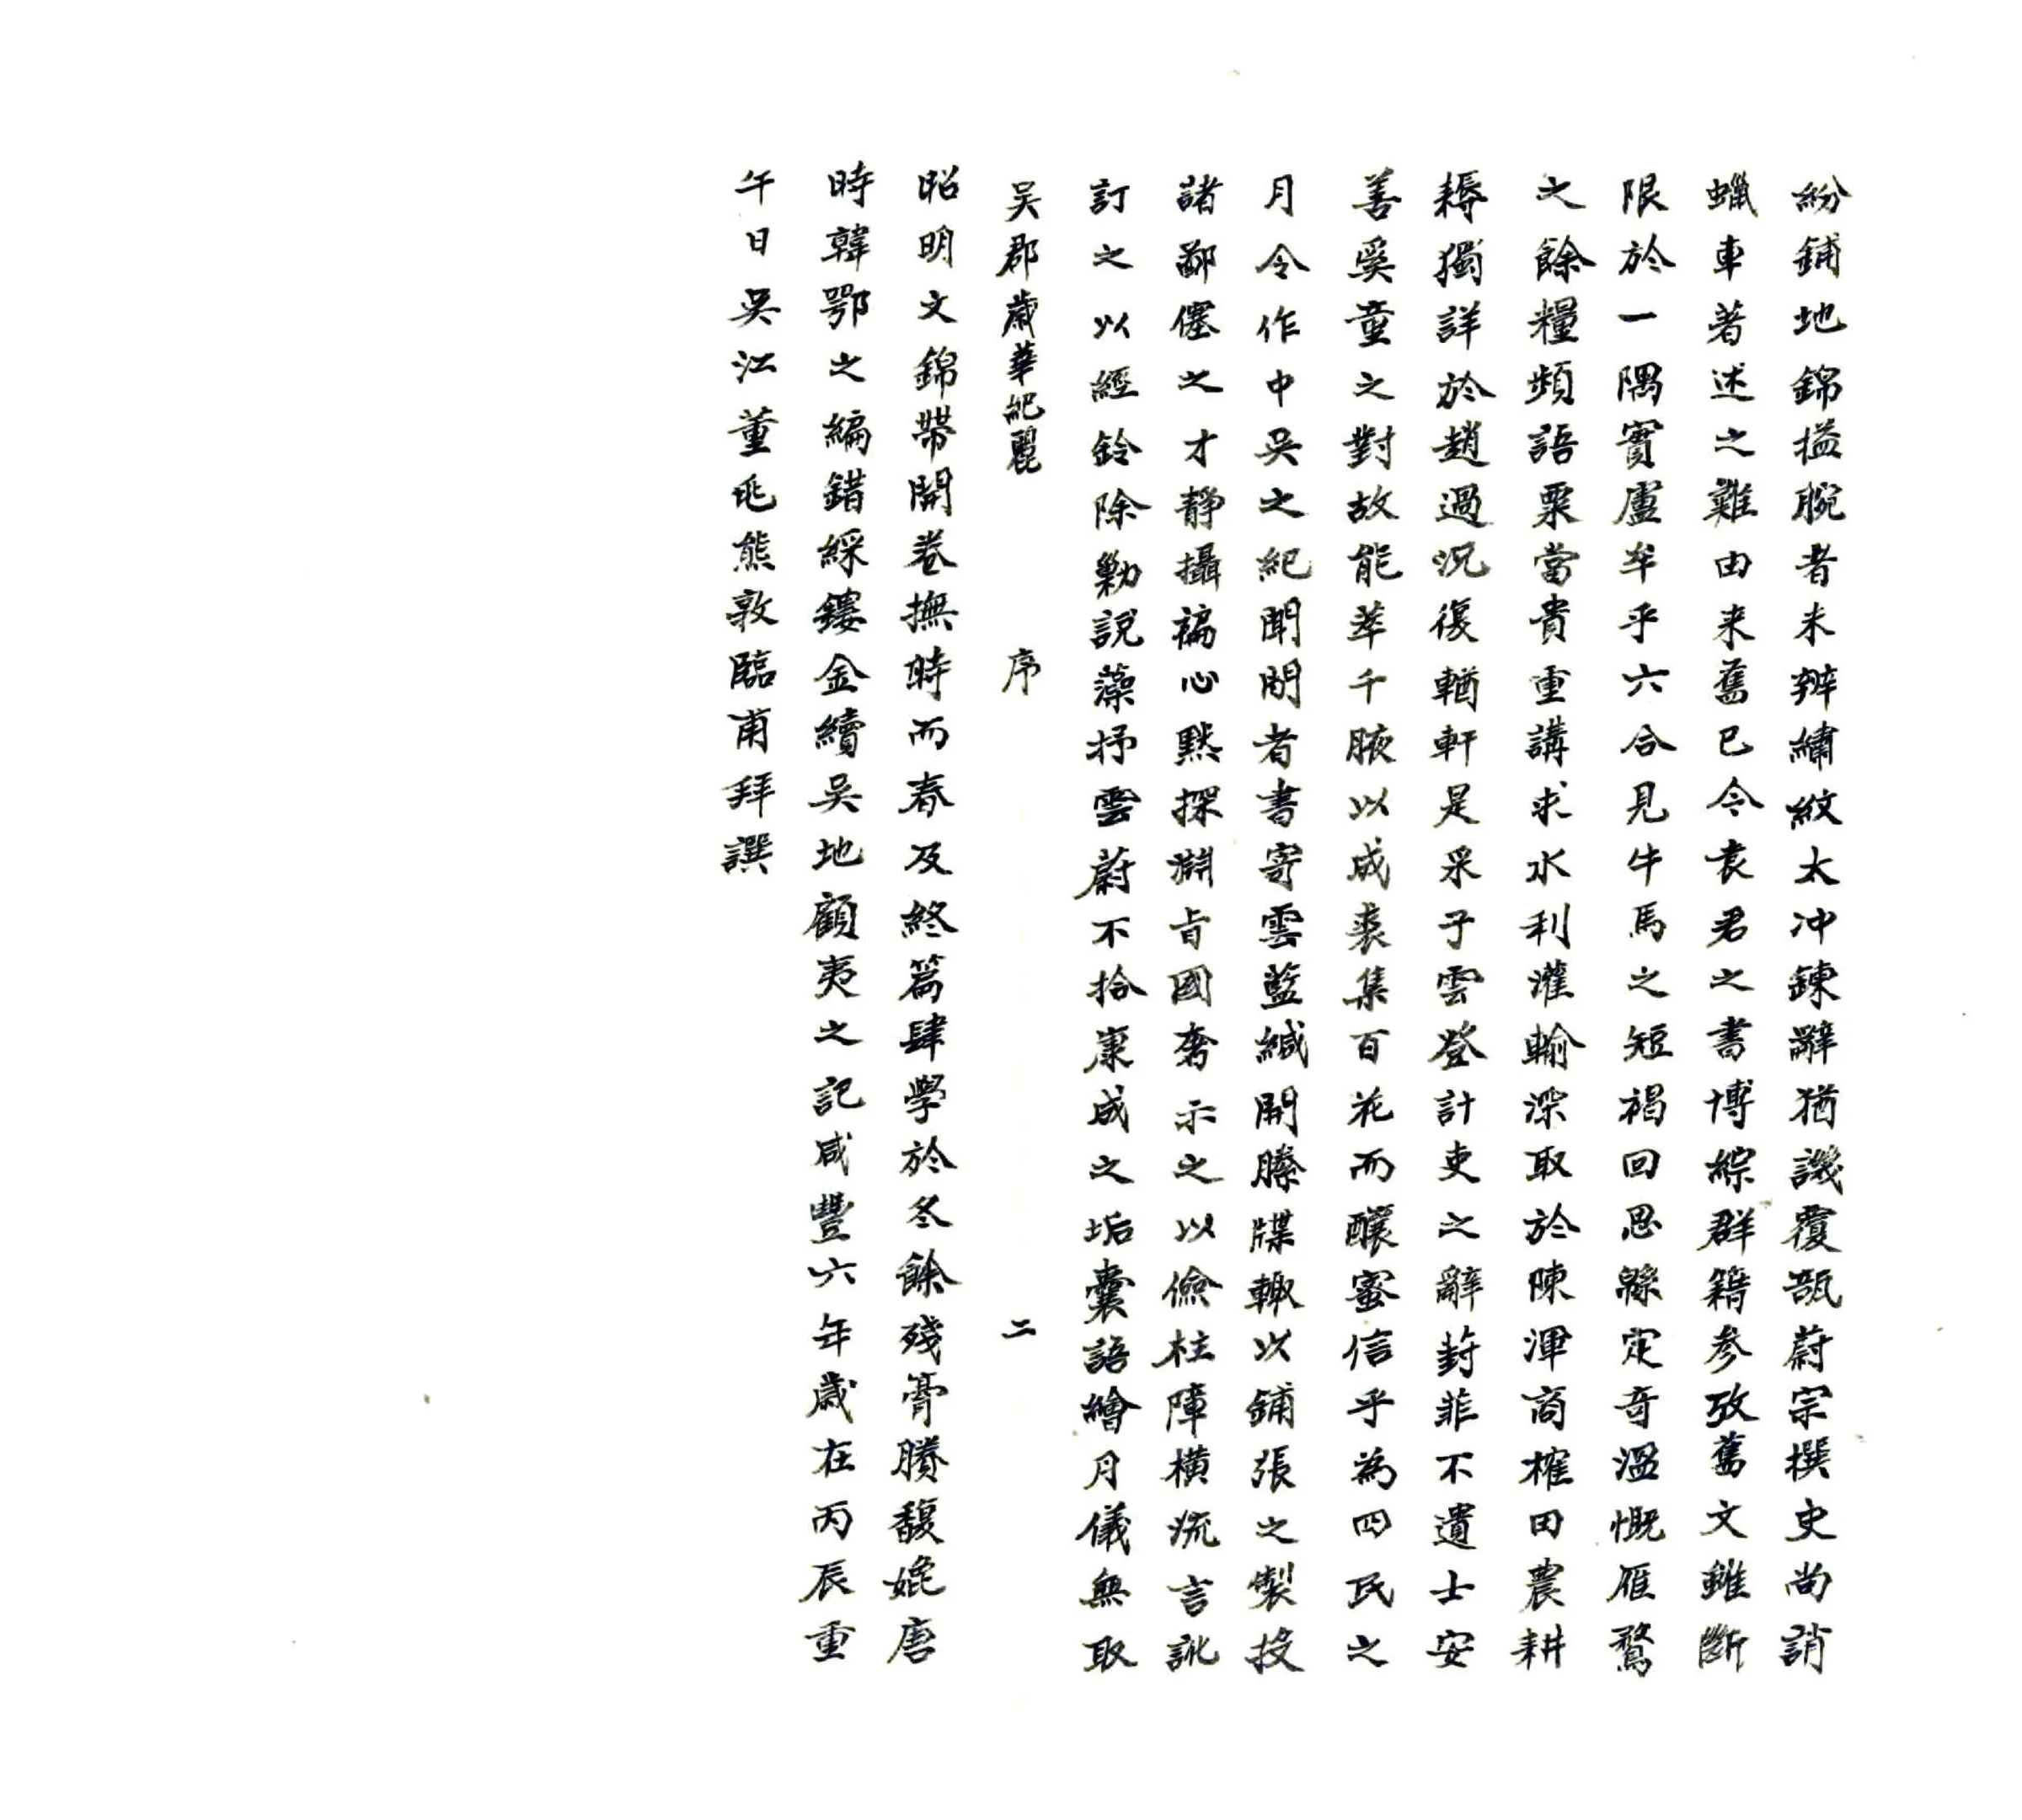 紛鋪地錦搤腕者未辨繡紋太冲鍊辭猶譏覆瓿蔚宗撰史尚誚
蠟車著述之難由来舊已令袁君之書博綜群籍参攷舊文雖斷
限於一隅實盧牟乎六合見牛馬之短褐回思緜定奇溫慨雁鶩
之餘糧頻語粟當貴重講求水利灌輸深取於陳渾商榷田農耕
耨獨詳於趙過況復輶軒是采子雲登計吏之辭葑菲不遺士安
善奚童之對故能萃千腋以成裘集百花而釀蜜信乎為四民之
月令作中吳之紀聞閒者書寄雲藍緘開縢牒輙以鋪張之製投
諸鄙僿之才靜攝褊心黙探淵旨國奢示之以儉柱障橫流言訛
訂之以經鈴除勦說藻抒雲蔚不拾康成之垢囊語繪月儀無取
吳郡歲華紀麗 序 二
昭明文錦帶開卷撫時而春及終篇肆學於冬餘殘膏賸馥媲唐
時韓鄂之編錯綵鏤金續吳地顧夷之記咸豐六年歲在丙辰重
午日吳江董兆熊敦臨甫拜譔